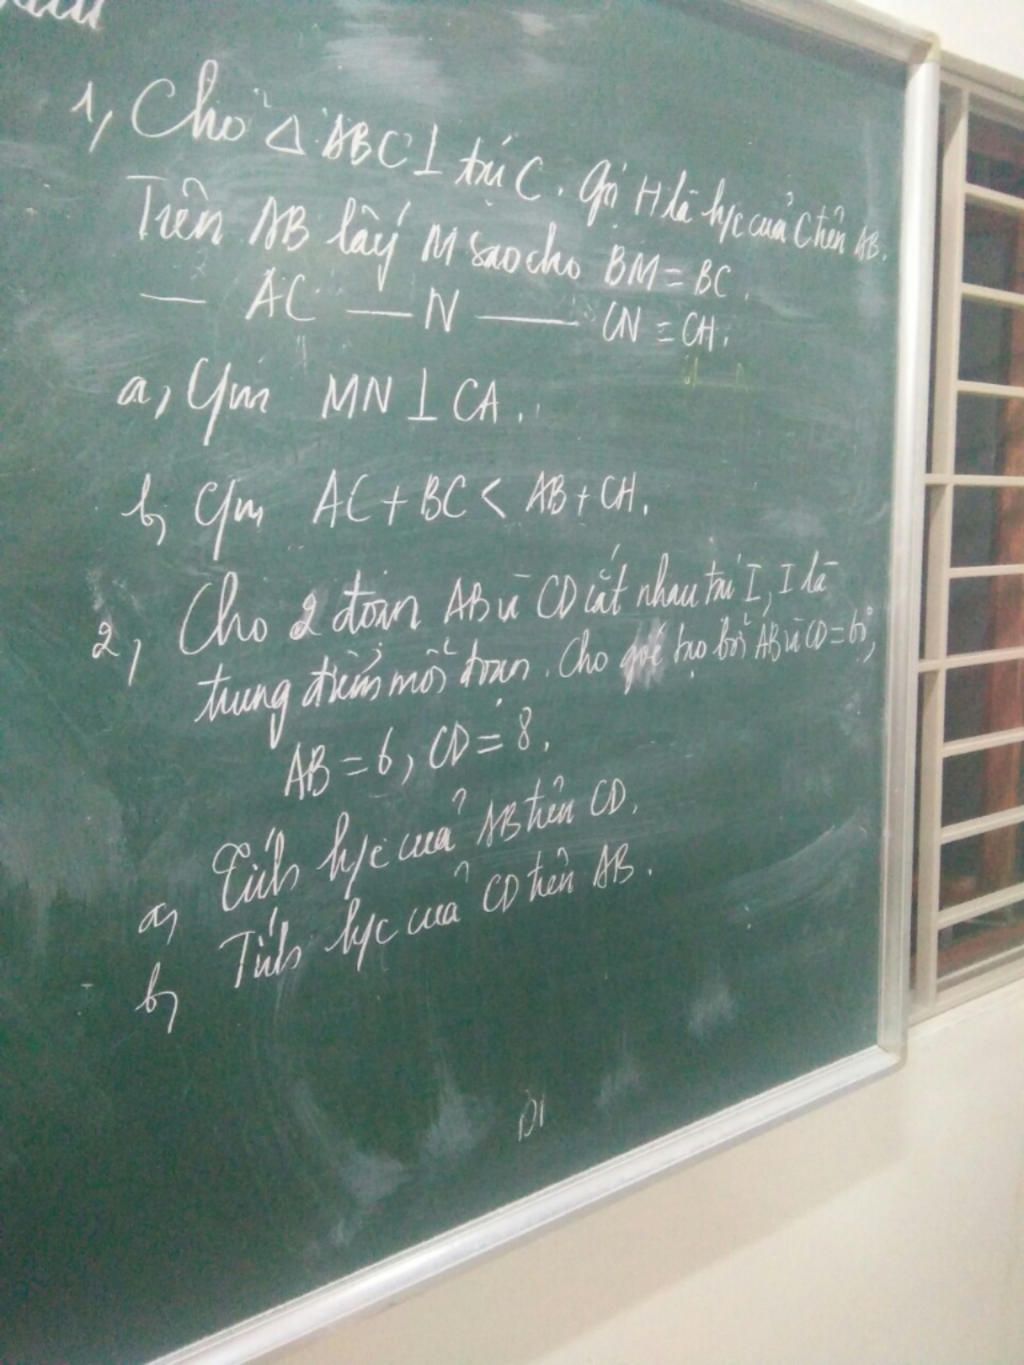 1, Cho Δ ABC ⊥ tại C. Gọi H là h/c của C trên AB.
Trên AB lấy M sao cho BM = BC.
— AC — N — CN = CH.
a, C/m MN ⊥ CA.
b, C/m AC + BC < AB + CH.
2, Cho 2 đoạn AB và CD cắt nhau tại I, I là
trung điểm mỗi đoạn. Cho góc tạo bởi AB và CD = 60°,
AB = 6, CD = 8.
a, Tính h/c của AB trên CD.
b, Tính h/c của CD trên AB.